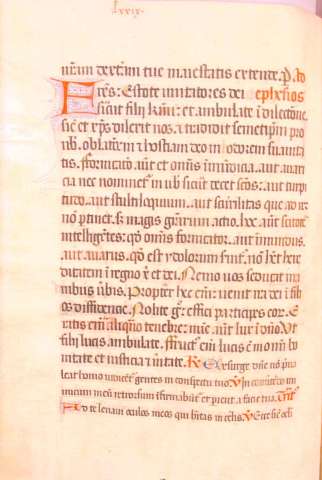 lxxix.
nram dexteram tue maiestatis extende. P. Ad
Fres: Estote imitatores dei ephesios
sicut filii kmi: et ambulate i dilectione
sic et xps dilexit nos. a tradidit semetipm pro
nob. oblatem a hostiam deo in odorem suauita
tis. Fornicatio aut et omnis imudicia. aut auari
cia nec nominet in uob sicut decet scos: aut turpi
tudo. aut stultiloquium. aut scurilitas que ad re
no ptinet. s; magis grarum actio. hec aut scitote
intelligentes: qd omis fornicator. aut imundus.
aut auarus. qd est ydolorum seruit. no ht here
ditatem i regno x et dei. Nemo uos seducat in a
nibus ubis. Propter hec eim uenit ira dei i filios
diffidencie. Nolite g effici participes eor. E
ratis eim aliquando tenebre: nunc aut lux i dno. Ut
filii lucis ambulate. fruct eim lucis e in om bo
nitate et iusticia i ueritate. R Exurge dne no pua
leat homo iudicent gentes in conspectu tuo. V In conuertendo in
imicum meu retrorsum infirmabunt et pient a facie tua. Tract
Ad te leuaui oculos meos qui hitas in celis. V Ecce sic ocli